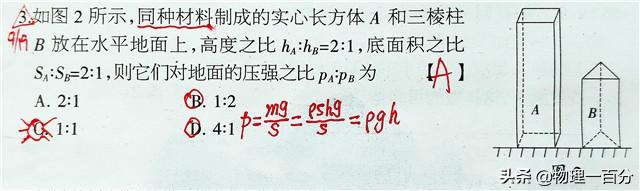 3.如图2所示,同种材料制成的实心长方体A和三棱柱
9/19
B放在水平地面上,高度之比hA:hB=2:1,底面积之比
SA:SB=2:1,则它们对地面的压强之比pA:pB为 【A】
A. 2:1 B. 1:2
C. 1:1 D. 4:1 p=mg/S=ρShg/S=ρgh
A B
头条@物理一百分